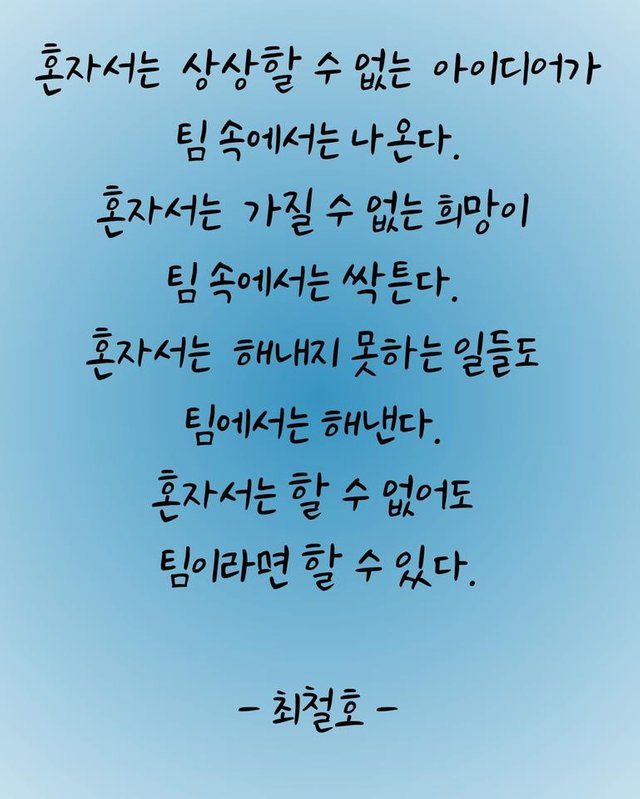 혼자서는 상상할 수 없는 아이디어가
팀 속에서는 나온다.
혼자서는 가질 수 없는 희망이
팀 속에서는 싹튼다.
혼자서는 해내지 못하는 일들도
팀에서는 해낸다.
혼자서는 할 수 없어도
팀이라면 할 수 있다.
- 최철호 -